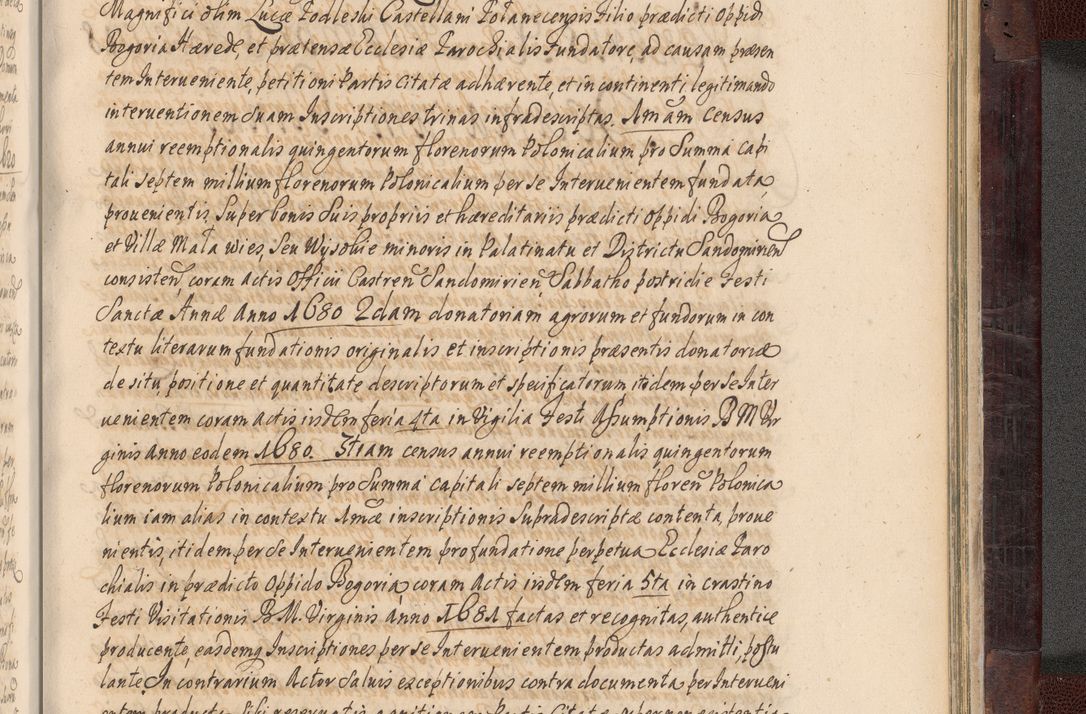 Magnifici olim Lucæ Podleski Castellani Połanecensis Filio prædicti oppidi
Bogoria Hærede, et prætensæ Ecclesiæ Parochialis Fundatore, ad causam præsen
tem Interueniente, petitioni Partis Citatæ adhærente, et in continenti, legitimando
interuentionem Suam Inscriptiones trinas infradescriptas, Amam census
annui reemptionalis quingentorum florenorum Polonicalium pro Summa Capi
tali septem millium florenorum Polonicalium per se Interuenientem fundata
prouenientis, super bonis suis proprijs et hæreditarijs prædicti oppidi Bogoria
et Villæ Mała wies, seu Wysokie minoris in Palatinatu et Districtu Sandomirien
consisten, coram Actis Officij Castren Sandomirien Sabbatho postridie Festi
Sanctæ Annæ Anno 1680 2dam donatoriam agrorum et fundorum in con
textu literarum fundationis originalis et inscriptionis præsentis donatoriæ
de situ, positione et quantitate descriptorum et specificatorum itidem per se Inter
uenientem coram actis ijsdem feria 4ta in Vigilia Festi Assumptionis B M Vir
ginis Anno eodem 1680. 3tiam census annui reemptionalis quingentorum
florenorum Polonicalium pro Summa capitali septem millium floren Polonica
lium iam alias in contextu Amæ inscriptionis supradescriptæ contenta, proue
nientis, itidem per se Interuenientem pro fundatione perpetua Ecclesiæ Paro
chialis in prædicto oppido Bogoria, coram Actis ijsdem feria 5ta in crastino
Festi Visitationis B. M. Virginis Anno 1681 factas et recognitas, authentice
producente, easdemq Inscriptiones per se Interuenientem productas admitti, postu
lante In contrarium Actor saluis exceptionibus contra documenta per Interueni
entem producta